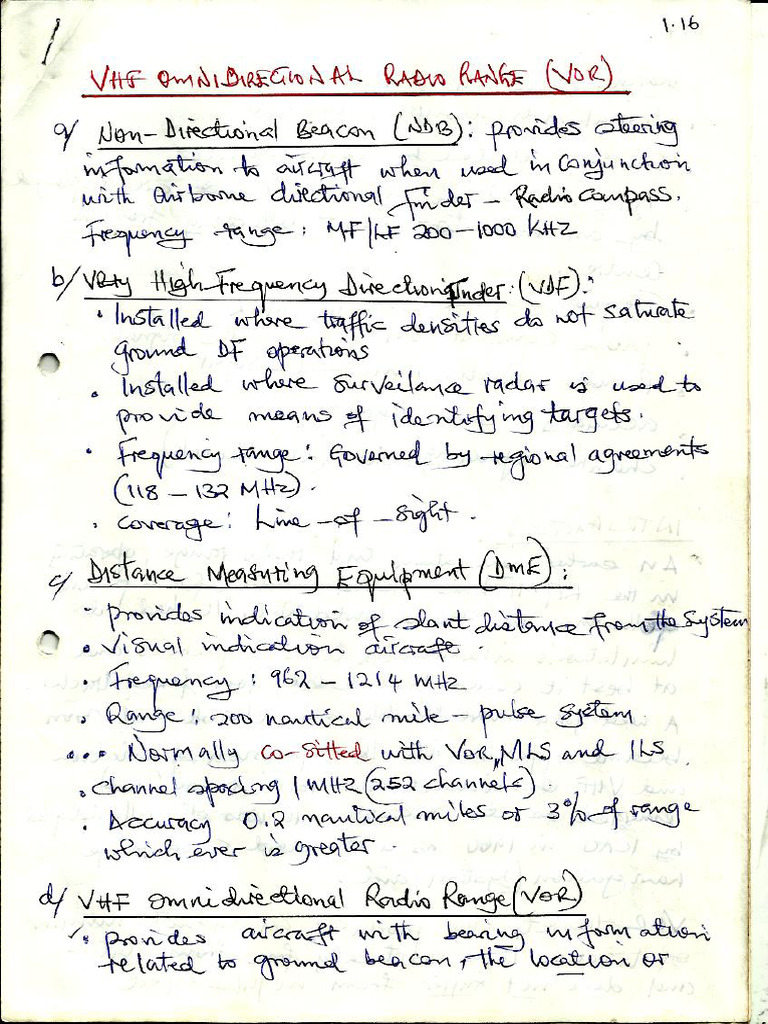 1.16
VHF OMNIDIRECTIONAL RADIO RANGE (VOR)
a/ Non-Directional Beacon (NDB): provides steering
information to aircraft when used in conjunction
with Airborne directional finder - Radio Compass.
Frequency range: MF/LF 200-1000 KHZ
b/ Very High-Frequency Direction Finder: (VDF):
· Installed where traffic densities do not saturate
ground DF operations
· Installed where surveilance radar is used to
provide means of identifying targets.
· Frequency range: Governed by regional agreements
(118 - 132 MHz).
· coverage: Line-of-sight.
c/ Distance Measuring Equipment (DME):
· provides indication of slant distance from the system
· Visual indication aircraft.
· Frequency: 962 - 1214 MHZ
· Range: 200 nautical mile - pulse system
... Normally co-sitted with VOR, MLS and ILS.
· Channel spacing 1 MHZ (252 channels).
· Accuracy 0.2 nautical miles or 3% of range
which ever is greater.
d/ VHF Omnidirectional Radio Range (VOR)
· provides aircraft with bearing information
related to ground beacon, the location or